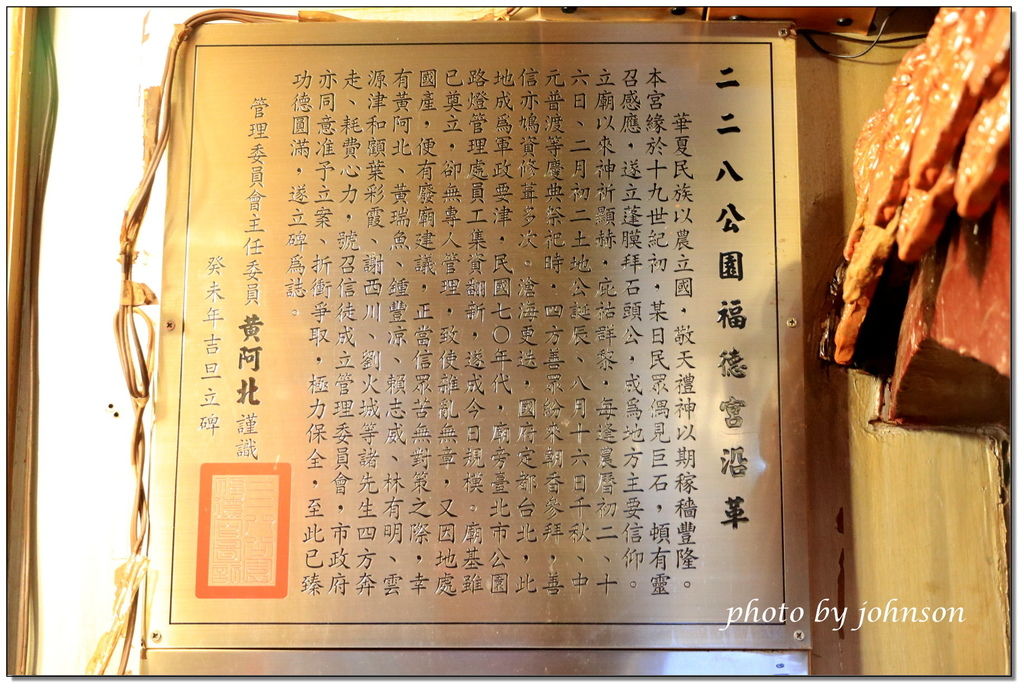 二二八公園福德宮沿革
華夏民族以農立國，敬天禮神以期稼穡豐隆。
本宮緣於十九世紀初，某日民眾偶見巨石，頓有靈
召感應，遂立蓬膜拜石頭公，或為地方主要信仰。
立廟以來神祈顯赫，庇祜群黎，每逢農曆初二、十
六日、二月初二土地公誕辰、八月十六日千秋、中
元普渡等慶典祭祀時，四方善眾紛來朝香參拜，善
信亦鳩資修葺多次。滄海更迭，國府定都台北，此
地成為軍政要津，民國七〇年代，廟旁臺北市公園
路燈管理處員工集資翻新，遂成今日規模。廟基雖
已奠立，卻無專人管理，致使雜亂無章，又因地處
國產，便有廢廟建議，正當信眾苦無對策之際，幸
有黃阿北、黃瑞魚、鍾豐涼、賴志威、林有明、雲
源津和顧葉彩霞、謝西川、劉火城等諸先生四方奔
走、耗費心力，號召信徒成立管理委員會，市政府
亦同意准予立案、折衝爭取，極力保全，至此已臻
功德圓滿，遂立碑為誌。
管理委員會主任委員 黃阿北 謹識
癸未年吉旦立碑
photo by johnson